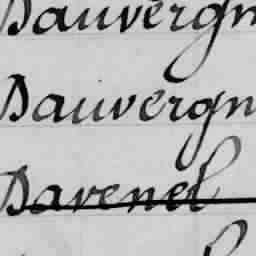 Dauvergn
Dauvergn
Davenel